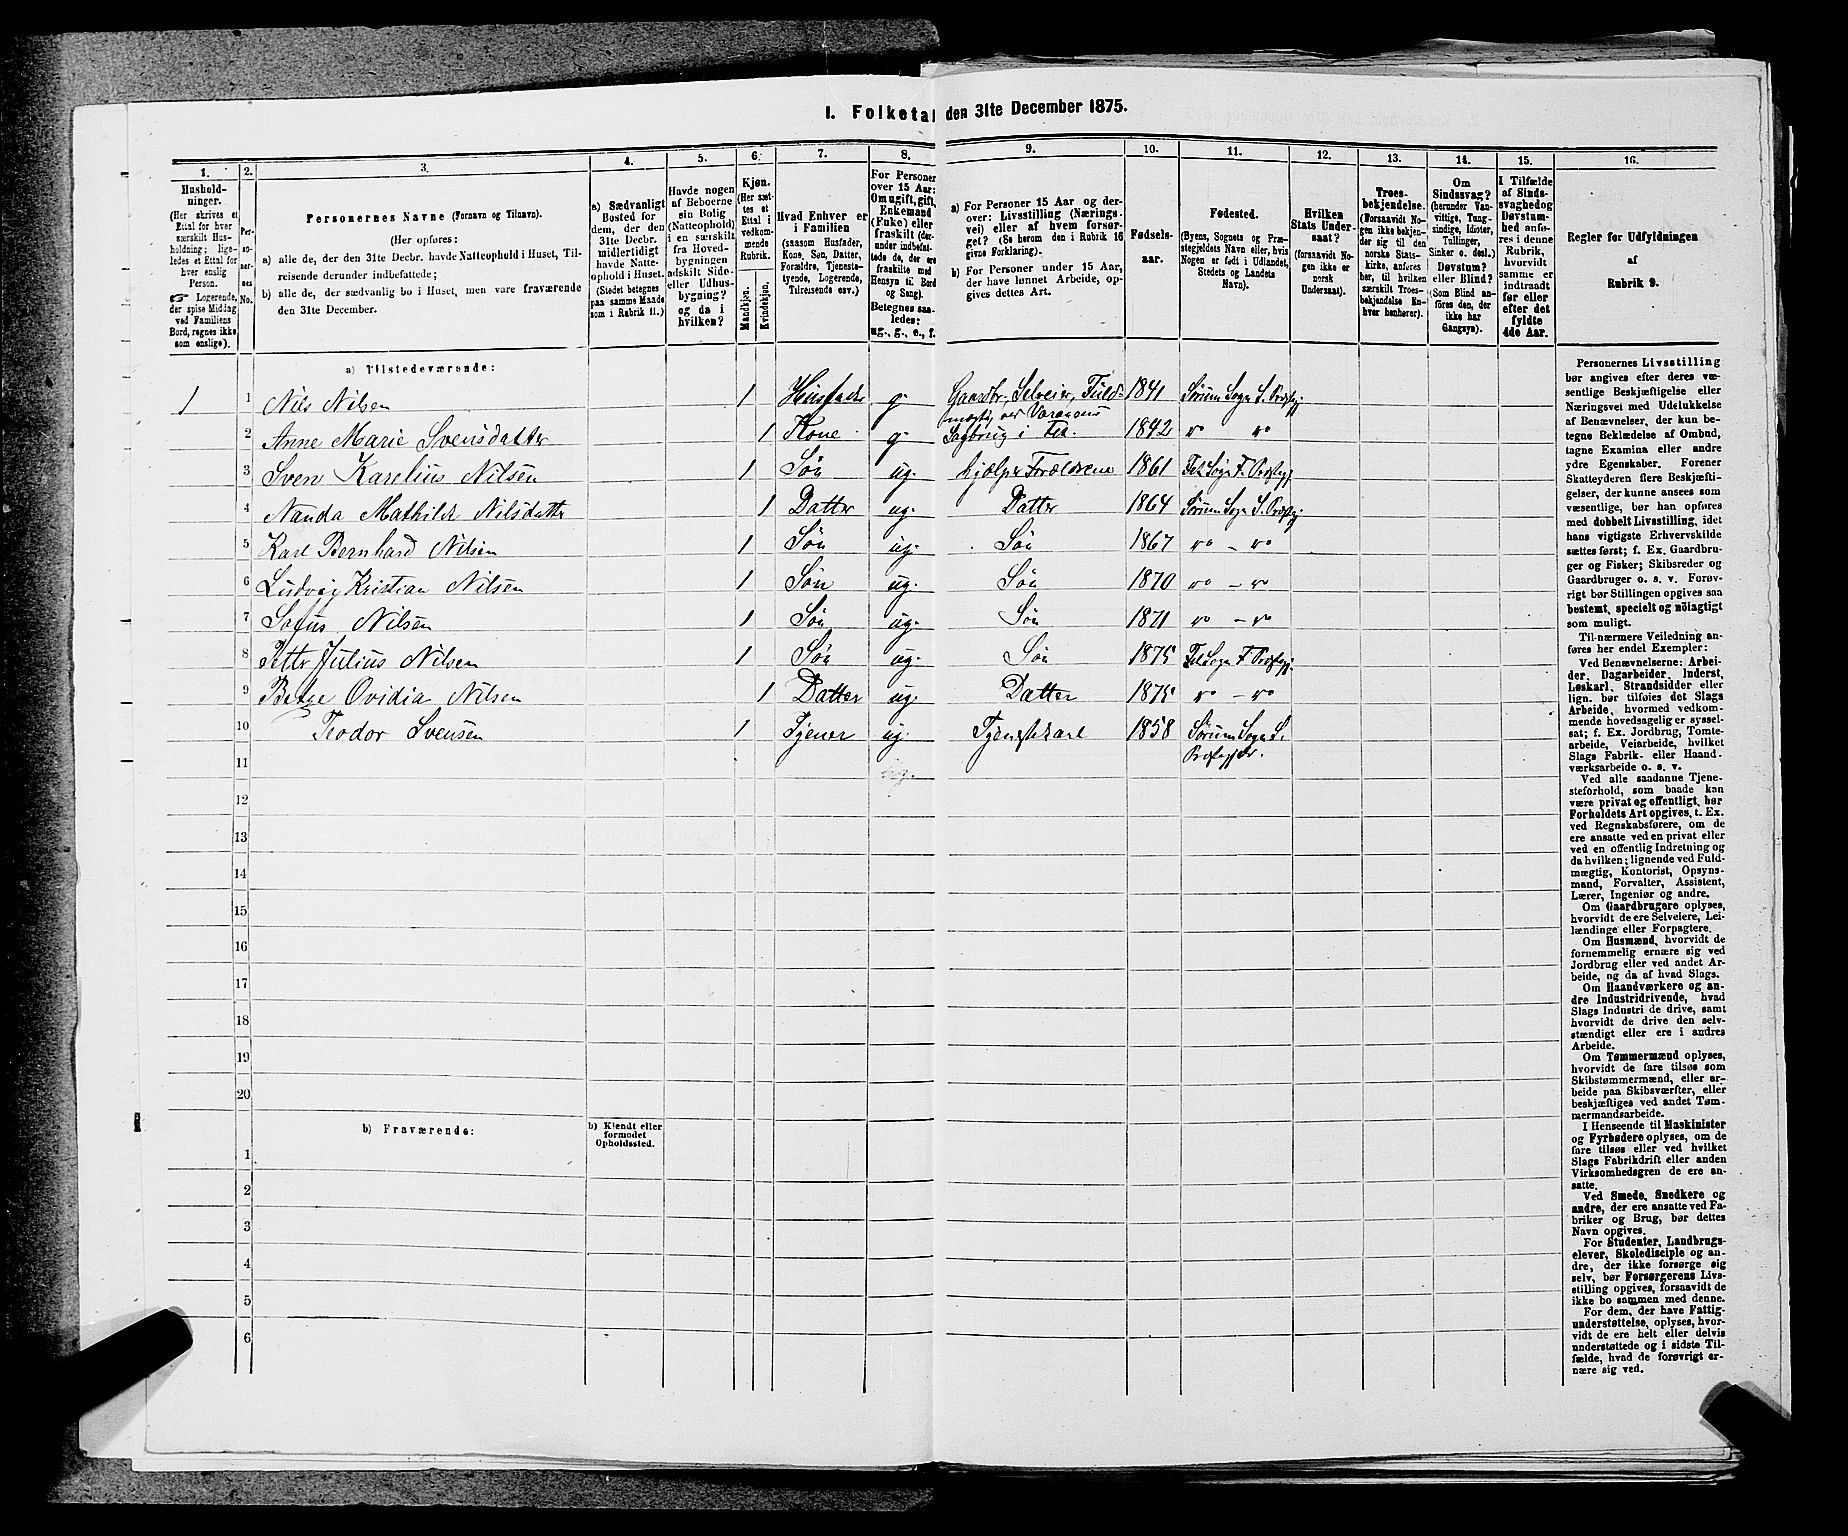 I. Folketal den 31te December 1875.
1.
Hushold-
ninger.
(Her skrives et
Ettal for hver
særskilt Hus-
holdning; lige-
ledes et Ettal for
hver enslig
Person.
☞ Logerende,
der spise Middag
ved Familiens
Bord, regnes ikke
som enslige).
2.
Per-
so-
ner-
nes
No.
3.
Personernes Navne (Fornavn og Tilnavn).
(Her opføres:
a) alle de, der den 31te Decbr. havde Natteophold i Huset, Til-
reisende derunder indbefattede;
b) alle de, der sædvanlig bo i Huset, men vare fraværende
den 31te December.
4.
a) Sædvanligt
Bosted for
dem, der den
31te Decbr.
midlertidigt
havde Natte-
ophold i Huset.
(Stedet betegnes
paa samme Maade
som i Rubrik 11.)
5.
Havde nogen
af Beboerne
sin Bolig
(Natteophold)
i en særskilt
fra Hoved-
bygningen
adskilt Side-
eller Udhus-
bygning?
og da i
hvilken?
6.
Kjøn.
(Her sæt-
tes et
Ettal i
vedkom-
mende
Rubrik.
Mandkjøn.
Kvindekjøn.
7.
Hvad Enhver er
i Familien
(saasom Husfader,
Kone, Søn, Datter,
Forældre, Tjeneste-
tyende, Logerende,
Tilreisende osv.)
8.
For Personer
over 15 Aar:
Om ugift, gift,
Enkemand
(Enke) eller
fraskilt (der-
under indbefat-
tede de, der ere
fraskilte med
Hensyn til Bord
og Seng).
Betegnes saa-
ledes:
ug., g., e., f.
9.
a) For Personer 15 Aar og der-
over: Livsstilling (Nærings-
vei) eller af hvem forsør-
get? (Se herom den i Rubrik 16
givne Forklaring).
b) For Personer under 15 Aar,
der have lønnet Arbeide, op-
gives dettes Art.
10.
Fødsels-
aar.
11.
Fødested.
(Byens, Sognets og Præ-
stegjeldets Navn eller, hvis
Nogen er født i Udlandet,
Stedets og Landets
Navn).
12.
Hvilken
Stats Under-
saat?
(forsaavidt No-
gen ikke er
norsk
Undersaat).
13.
Troes-
bekjendelse.
(Forsaavidt No-
gen ikke bekjen-
der sig til den
norske Stats-
kirke, anføres
her, til hvilken
særskilt Troes-
bekjendelse En-
hver henhører).
14.
Om
Sindssvag?
(herunder Van-
vittige, Tung-
sindige, Idioter,
Tullinger,
Sinker o. desl.)
Døvstum?
eller Blind?
(Som Blind an-
føres den, der
ikke har
Gangsyn).
15.
I Tilfælde
af Sinds-
svaghed og
Døvstum-
hed anfø-
res i denne
Rubrik,
hvorvidt
samme er
indtraadt
før eller
efter det
fyldte
4de Aar.
16.
Regler for Udfyldningen
af
Rubrik 9.
a) Tilstedeværende:
1 1 Nils Nilsen 1 Husfader g. Gaardbr., Selveier, Fuld- 1841 Sørum Sogn S. Præstgj.
mægtig ved
2 Anne Marie Svensdatter 1 Kone g. Sagbrug i Fet. 1842 do do
3 Sven Karelius Nilsen 1 Søn ug. hjælper Forældrene 1861 Fet Sogn F. Præstgj.
4 Nanda Mathilde Nilsdatter 1 Datter ug. Datter 1864 Sørum Sogn S. Præstgj.
5 Karl Bernhard Nilsen 1 Søn ug. Søn 1867 do - do
6 Ludvig Kristian Nilsen 1 Søn ug. Søn 1870 do - do
7 Sofus Nilsen 1 Søn ug. Søn 1871 do - do
8 Petter Julius Nilsen 1 Søn ug. Søn 1875 Fet Sogn F. Præstgj.
9 Ovidia Nilsen 1 Datter ug. Datter 1875 do - do
10 Teodor Svensen 1 Tjener ug. Tjenestekarl 1858 Sørum Sogn S.
11
12
13
14
15
16
17
18
19
20
b) Fraværende:
b) Kjendt eller
formodet
Opholdssted.
1
2
3
4
5
6
Personernes Livsstilling
bør angives efter deres væ-
sentlige Beskjæftigelse eller
Næringsvei med Udelukkelse
af Benævnelser, der kun be-
tegne Beklædelse af Ombud,
tagne Examina eller andre
ydre Egenskaber. Forener
Skatteyderen flere Beskjæfti-
gelser, der kunne ansees som
væsentlige, bør han opføres
med dobbelt Livsstilling, idet
hans vigtigste Erhvervskilde
sættes først; f. Ex. Gaardbru-
ger og Fisker; Skibsreder og
Gaardbruger o. s. v. Forøv-
rigt bør Stillingen opgives saa
bestemt, specielt og nöiagtigt
som muligt.
Til nærmere Veiledning an-
føres her endel Exempler:
Ved Benævnelserne: Arbei-
der, Dagarbeider, Inderst,
Løskarl, Strandsidder eller
lign. bør tilføies det Slags
Arbeide, hvormed vedkom-
mende hovedsagelig er syssel-
sat; f. Ex. Jordbrug, Tomte-
arbeide, Veiarbeide, hvilket
Slags Fabrik- eller Haand-
værksarbeide o. s. v.
Ved alle saadanne Tjene-
steforhold, som baade kan
være privat og offentligt, bør
Forholdets Art opgives, t. Ex.
ved Regnskabsførere, om de
ere ansatte ved en privat eller
ved en offentlig Indretning og
da hvilken; lignende ved Fuld-
mægtig, Kontorist, Opsyns-
mand, Forvalter, Assistent,
Lærer, Ingeniør og andre.
Om Gaardbrugere oplyses,
hvorvidt de ere Selveiere, Lei-
lændinge eller Forpagtere.
Om Husmænd, hvorvidt de
fornemmelig ernære sig ved
Jordbrug eller ved andet Ar-
beide, og da af hvad Slags.
Om Haandværkere og an-
dre Industridrivende, hvad
Slags Industri de drive, samt
hvorvidt de drive den selv-
stændigt eller ere i andres
Arbeide.
Om Tømmermænd oplyses,
hvorvidt de fare tilsøs som
Skibstømmermænd, eller ar-
beide paa Skibsværfter, eller
beskjæftiges ved andet Tøm-
mermandsarbeide.
I Henseende til Maskinister
og Fyrbødere oplyses, om de
fare tilsøs eller ved hvilket
Slags Fabrikdrift eller anden
Virksomhedsgren de ere an-
satte.
Ved Smede, Snedkere og
andre, der ere ansatte ved Fa-
briker og Brug, bør dettes
Navn opgives.
For Studenter, Landbrugs-
elever, Skoledisciple og an-
dre, der ikke forsørge sig
selv, bør Forsørgerens Livs-
stilling opgives, forsaavidt de
ikke bo sammen med denne.
For dem, der have Fattig-
understøttelse, oplyses, hvor-
vidt de ere helt eller delvis
understøttede og i sidste Til-
fælde, hvad de forøvrigt er-
nære sig ved.